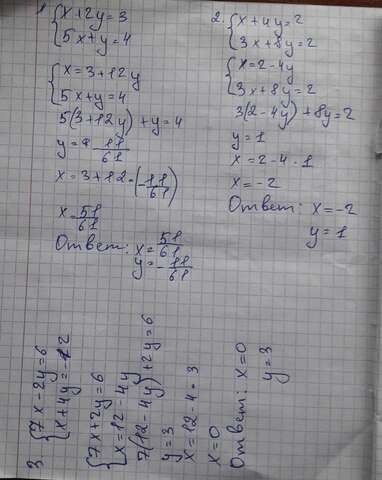 1. { x+2y=3
5x+y=4
{ x=3+12y
5x+y=4
5(3+12y)+y=4
y=-11/61
x=3+12·(-11/61)
x=51/61
Ответ: x=51/61
y=-11/61
2. { x+4y=2
3x+8y=2
{ x=2-4y
3x+8y=2
3(2-4y)+8y=2
y=1
x=2-4·1
x=-2
Ответ: x=-2
y=1
3 { 7x-2y=6
x+4y=12
{ 7x+2y=6
x=12-4y
7(12-4y)+2y=6
y=3
x=12-4·3
x=0
Ответ: x=0
y=3